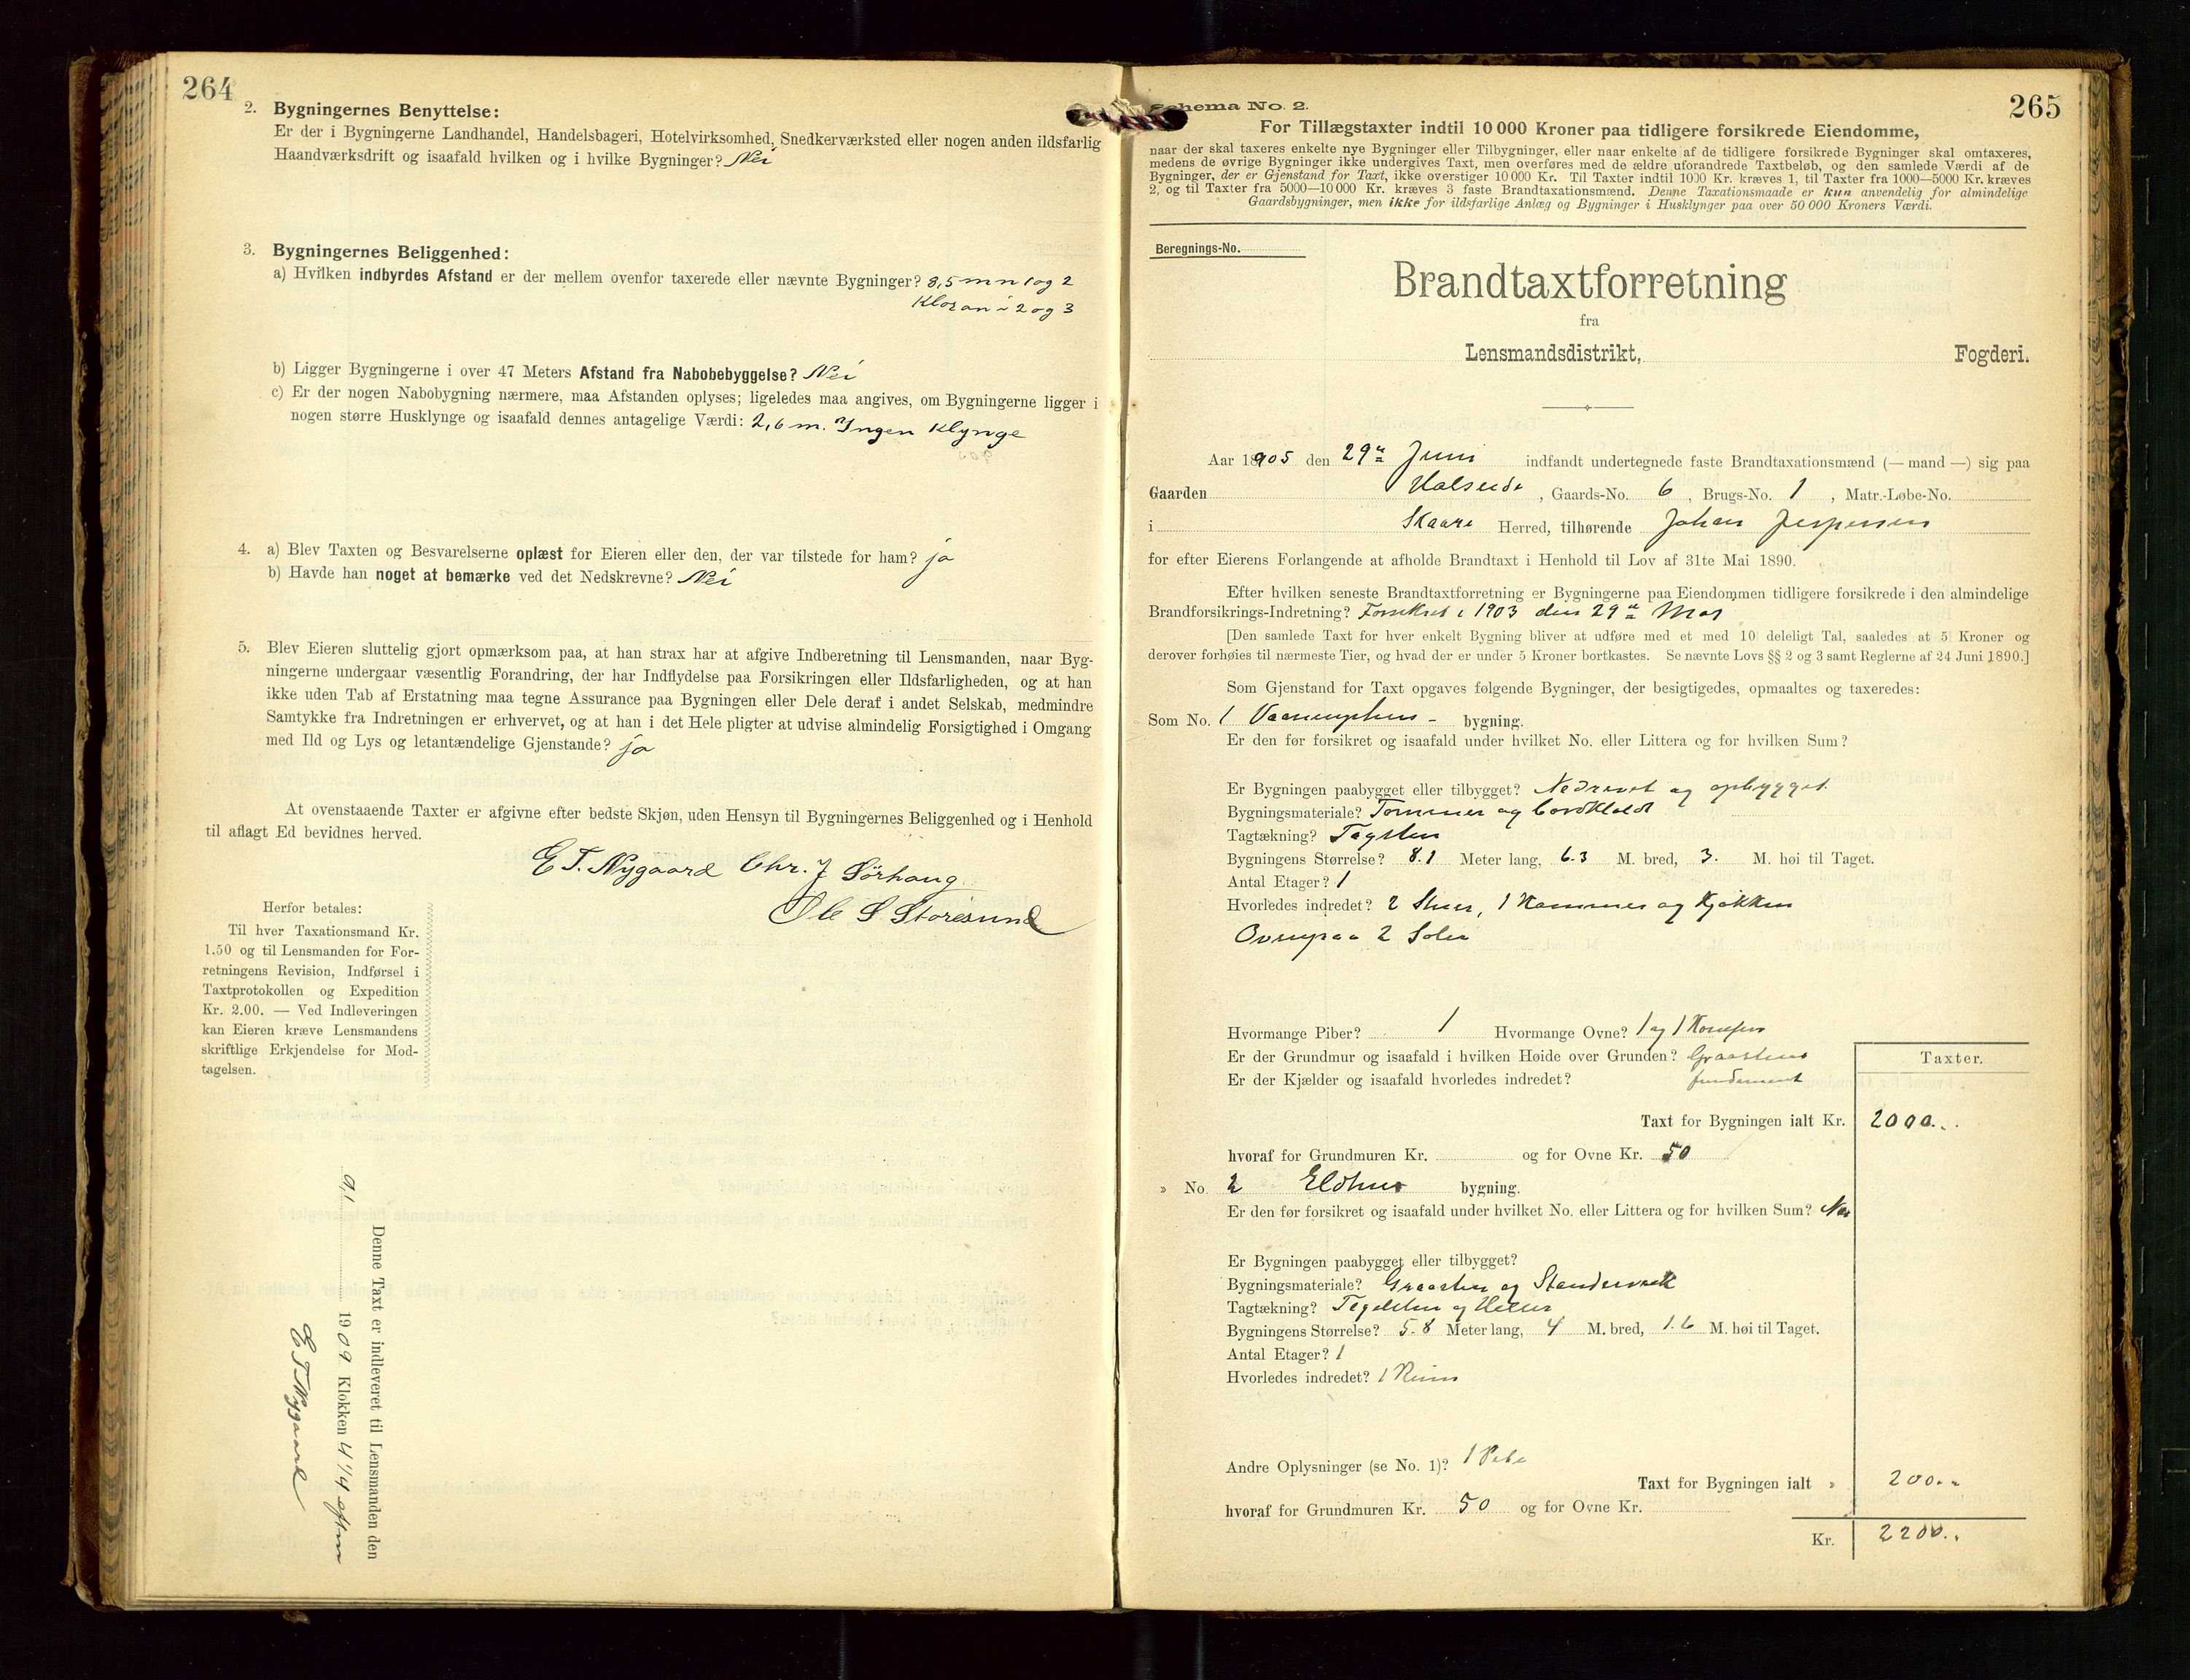 264
2. Bygningernes Benyttelse:
Er der i Bygningerne Landhandel, Handelsbageri, Hotelvirksomhed, Snedkerværksted eller nogen anden ildsfarlig
Haandværksdrift og isaafald hvilken og i hvilke Bygninger? Nei
3. Bygningernes Beliggenhed:
a) Hvilken indbyrdes Afstand er der mellem ovenfor taxerede eller nævnte Bygninger? 8,5 m n 1 og 2
2 og 3
b) Ligger Bygningerne i over 47 Meters Afstand fra Nabobebyggelse? Nei
c) Er der nogen Nabobygning nærmere, maa Afstanden oplyses; ligeledes maa angives, om Bygningerne ligger i
nogen større Husklynge og isaafald dennes antagelige Værdi: 2,6 m. Ingen Klynge
4. a) Blev Taxten og Besvarelserne oplæst for Eieren eller den, der var tilstede for ham? ja
b) Havde han noget at bemærke ved det Nedskrevne? Nei
5. Blev Eieren sluttelig gjort opmærksom paa, at han strax har at afgive Indberetning til Lensmanden, naar Byg-
ningerne undergaar væsentlig Forandring, der har Indflydelse paa Forsikringen eller Ildsfarligheden, og at han
ikke uden Tab af Erstatning maa tegne Assurance paa Bygningen eller Dele deraf i andet Selskab, medmindre
Samtykke fra Indretningen er erhvervet, og at han i det Hele pligter at udvise almindelig Forsigtighed i Omgang
med Ild og Lys og letantændelige Gjenstande? ja
At ovenstaaende Taxter er afgivne efter bedste Skjøn, uden Hensyn til Bygningernes Beliggenhed og i Henhold
til aflagt Ed bevidnes herved.
E T. Nygaard Chr. J Sörhaug
Ole S Storesund
Herfor betales:
Til hver Taxationsmand Kr.
1.50 og til Lensmanden for For-
retningens Revision, Indførsel i
Taxtprotokollen og Expedition
Kr. 2.00. — Ved Indleveringen
kan Eieren kræve Lensmandens
skriftlige Erkjendelse for Mod-
tagelsen.
Denne Taxt er indleveret til Lensmanden den
9/1 1909 Klokken 4 1/4 eftm
E T Nygaard
265
Schema No. 2.
For Tillægstaxter indtil 10 000 Kroner paa tidligere forsikrede Eiendomme,
naar der skal taxeres enkelte nye Bygninger eller Tilbygninger, eller naar enkelte af de tidligere forsikrede Bygninger skal omtaxeres,
medens de øvrige Bygninger ikke undergives Taxt, men overføres med de ældre uforandrede Taxtbeløb, og den samlede Værdi af de
Bygninger, der er Gjenstand for Taxt, ikke overstiger 10 000 Kr. Til Taxter indtil 1000 Kr. kræves 1, til Taxter fra 1000—5000 Kr. kræves
2, og til Taxter fra 5000—10 000 Kr. kræves 3 faste Brandtaxationsmænd. Denne Taxationsmaade er kun anvendelig for almindelige
Gaardsbygninger, men ikke for ildsfarlige Anlæg og Bygninger i Husklynger paa over 50 000 Kroners Værdi.
Beregnings-No.
Brandtaxtforretning
fra
Lensmandsdistrikt, Fogderi.
Aar 1905 den 29de Juni indfandt undertegnede faste Brandtaxationsmænd (— mand —) sig paa
Gaarden , Gaards-No. 6 , Brugs-No. 1 , Matr.-Løbe-No.
i Skaare Herred, tilhørende Johan Jespersen
for efter Eierens Forlangende at afholde Brandtaxt i Henhold til Lov af 31te Mai 1890.
Efter hvilken seneste Brandtaxtforretning er Bygningerne paa Eiendommen tidligere forsikrede i den almindelige
Brandforsikrings-Indretning? Forsikret i 1903 den 29de Mai
[Den samlede Taxt for hver enkelt Bygning bliver at udføre med et med 10 deleligt Tal, saaledes at 5 Kroner og
derover forhøies til nærmeste Tier, og hvad der er under 5 Kroner bortkastes. Se nævnte Lovs §§ 2 og 3 samt Reglerne af 24 Juni 1890.]
Som Gjenstand for Taxt opgaves følgende Bygninger, der besigtigedes, opmaaltes og taxeredes:
Som No. 1 Vaaningshus - bygning.
Er den før forsikret og isaafald under hvilket No. eller Littera og for hvilken Sum?
Er Bygningen paabygget eller tilbygget? Nedrevet og opbygget
Bygningsmateriale? Tømmer og bordklædt
Tagtækning? Tagsten
Bygningens Størrelse? 8.1 Meter lang, 6.3 M. bred, 3. M. høi til Taget.
Antal Etager? 1
Hvorledes indredet? 2 Stuer, 1 Kammer og Kjøkken
Ovenpaa 2 Saler
Hvormange Piber? 1 Hvormange Ovne? 1 og 1 Komfur
Er der Grundmur og isaafald i hvilken Høide over Grunden? Graastens
Er der Kjælder og isaafald hvorledes indredet? fundament
Taxter.
Taxt for Bygningen ialt Kr. 2000..
hvoraf for Grundmuren Kr. og for Ovne Kr. 50
» No. 2 Eldhus bygning.
Er den før forsikret og isaafald under hvilket No. eller Littera og for hvilken Sum? Nei
Er Bygningen paabygget eller tilbygget?
Bygningsmateriale? Graasten og Standerverk
Tagtækning? Tagelsten og Heller
Bygningens Størrelse? 5.8 Meter lang, 4 M. bred, 1.6 M. høi til Taget.
Antal Etager? 1
Hvorledes indredet? 1 Rum
Andre Oplysninger (se No. 1)? 1 Pibe
Taxt for Bygningen ialt » 200..
hvoraf for Grundmuren Kr. 50 og for Ovne Kr.
Kr. 2200..